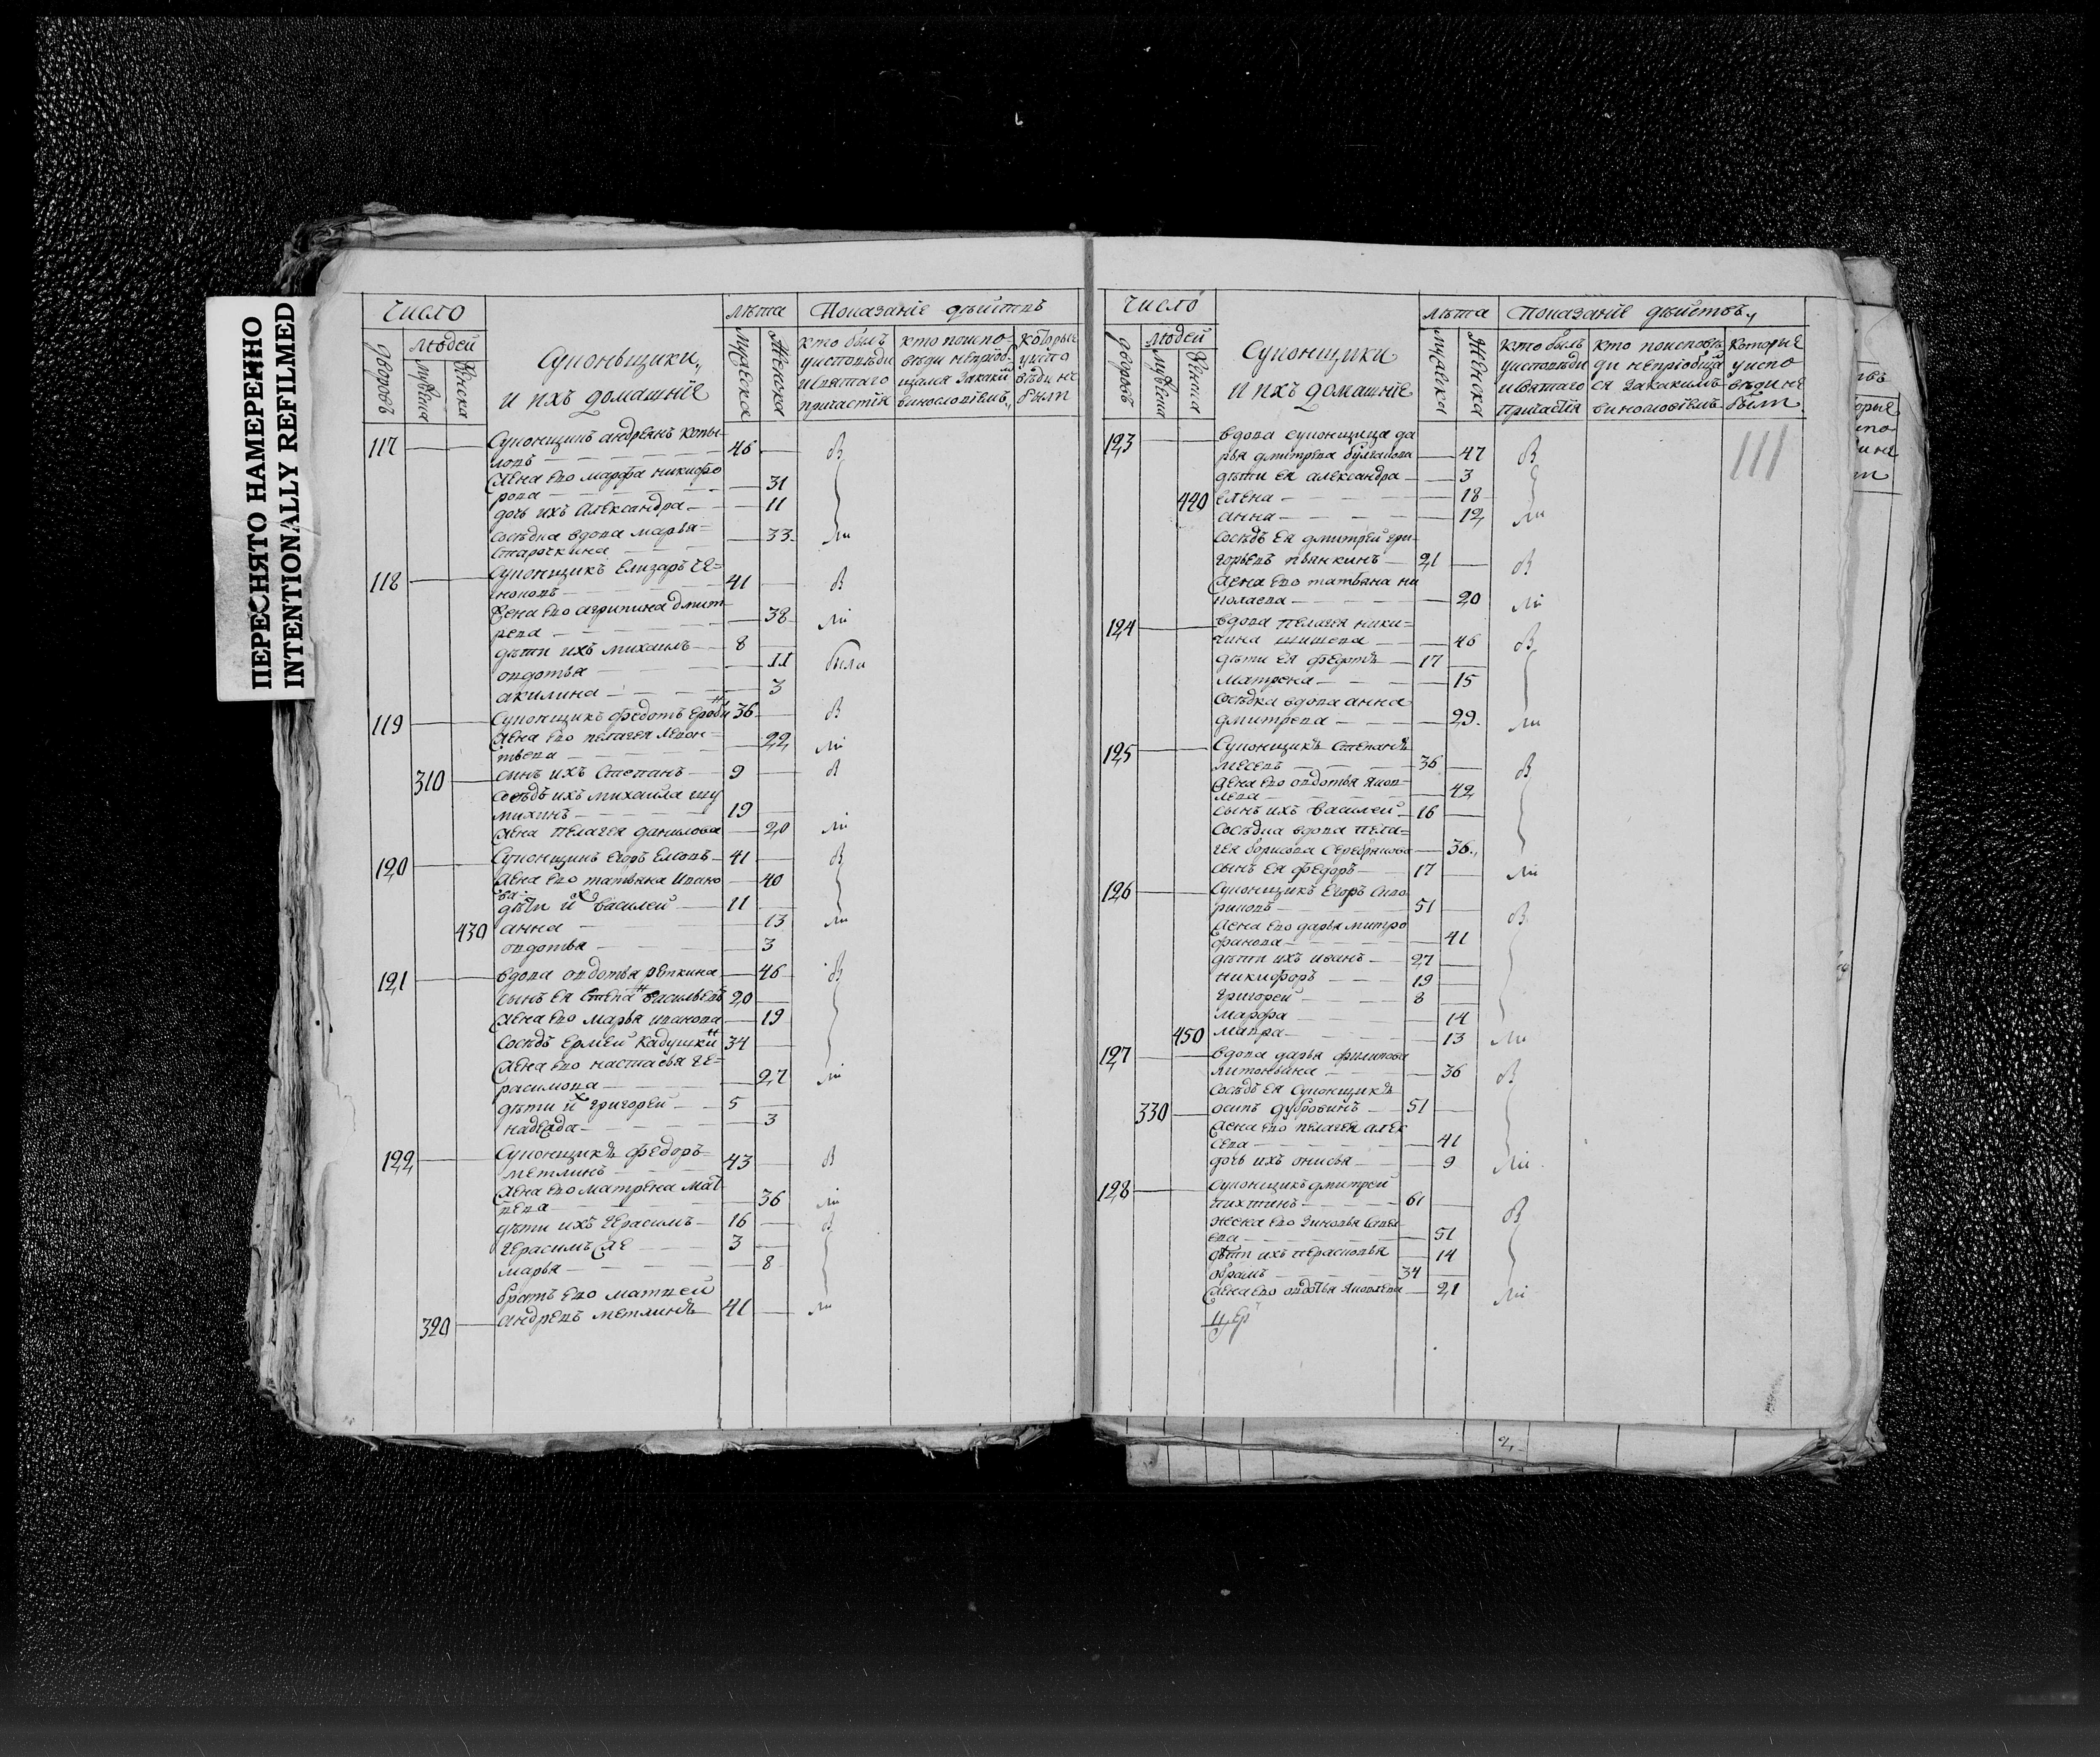 ПЕРЕСНЯТО НАМЕРЕННО
INTENTIONALLY REFILMED
Число
Лѣта
Показаніе дѣйствъ
дворовъ
людей
мужеска
женска
Супонъщики
и ихъ домашніе
мужеска
женска
кто былъ
у исповѣди
и святаго
причастія
кто по испо-
вѣди непріоб-
щался за какимъ
винословіемъ
которые
у испо
вѣди не
были
117 Супонщикъ андреянъ копы-
ловъ 46 В
жена ево марфа никифо
рова 31
дочь ихъ Александра 11
сосѣдка вдова марья
Старочкина 33 ли
118 Супонщикъ Елизаръ че-
ноковъ 41 В
жена ево агрипина дмит
рева 38 ли
дѣти ихъ михаилъ 8
овдотья 11 была
акилина 3
119 Супонщикъ федотъ 36 В
жена ево пелагея левон-
тьева 22 ли
310 сынъ ихъ Степанъ 9 В
Сосѣдъ ихъ михаила шу
михинъ 19
жена пелагея данилова 20 ли
120 Супонщикъ Егоръ Елховъ 41 В
жена ево татьяна Ивано 40
ва
дѣти их Василей 11
430 анна 13 ли
овдотья 3
121 вдова овдотья репкина 46 В
сынъ ея степан васильевъ 20
жена ево марья иванова 19
Сосѣдъ Ермей Кадушкин 34
жена ево настасья ге-
расимова 27 ли
дѣти их григорей 5
надежда 3
122 Супонщикъ федоръ
метлинъ 43 В
жена ево матрена мат
веева 36 ли
дѣти ихъ герасимъ 16 В
герасимъ же 3
марья 8
братъ ево матвей
320 андреевъ метлинъ 41 ли
Число
Лѣта
Показаніе дѣйствъ
дворовъ
людей
мужеска
женска
Супонщики
и ихъ домашніе
мужеска
женска
кто былъ
у исповѣди
и святаго
причастія
кто по исповѣ
ди непріобща
ся за какимъ
винословіемъ
которые
у испо
вѣди не
были
111
123 вдова супонщица да
рья дмитрева булгакова 47 В
дѣти ея александра 3
440 елена 18
анна 12 ли
Сосѣдъ ея дмитрей гри-
горьевъ пьянкинъ 21 В
жена ево татьяна ни
колаева 20 ли
124 вдова пелагея ники-
тина шишева 46 В
дѣти ея федотъ 17
матрена 15
Сосѣдка вдова анна
дмитрева 29 ли
125 Супонщикъ степанъ
месевъ 36 В
жена ево овдотья яков-
лева 42
сынъ ихъ Василей 16
Сосѣдка вдова пела-
гея борисова серебрякова 36
сынъ ея федоръ 17 ли
126 Супонщикъ Егоръ
51 В
жена ево дарья митро
фанова 41
дѣти ихъ иванъ 27
никифоръ 19
григорей 8
марфа 14
450 мавра 13 ли
127 вдова дарья филипова
36 В
Сосѣдъ ея Супонщикъ
330 осипъ дубровинъ 51
жена ево пелагея алек
сева 41
дочь ихъ онисья 9 ли
128 Супонщикъ дмитрей
пихтинъ 61 В
женка ево зиновья
ева 51
дѣти ихъ парасковья 14
абрамъ 34
жена ево овдотья яковлева 21 ли